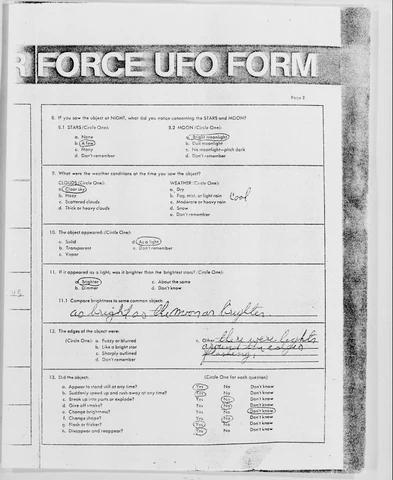 R FORCE UFO FORM
Page 2
8. If you saw the object at NIGHT, what did you notice concerning the STARS and MOON?
8.1 STARS (Circle One): 8.2 MOON (Circle One):
a. None a. Bright moonlight
b. A few b. Dull moonlight
c. Many c. No moonlight—pitch dark
d. Don't remember d. Don't remember
9. What were the weather conditions at the time you saw the object?
CLOUDS (Circle One): WEATHER (Circle One):
a. Clear sky a. Dry
b. Hazy b. Fog, mist, or light rain Cool
c. Scattered clouds c. Moderate or heavy rain
d. Thick or heavy clouds d. Snow
e. Don't remember
10. The object appeared: (Circle One):
a. Solid d. As a light
b. Transparent e. Don't remember
c. Vapor
11. If it appeared as a light, was it brighter than the brightest stars? (Circle One):
a. Brighter c. About the same
b. Dimmer d. Don't know
11.1 Compare brightness to some common object:
as bright as the moon or brighter
12. The edges of the object were:
(Circle One): a. Fuzzy or blurred e. Other there were lights
b. Like a bright star around the edges
c. Sharply outlined flashing
d. Don't remember
13. Did the object: (Circle One for each question)
a. Appear to stand still at any time? Yes No Don't know
b. Suddenly speed up and rush away at any time? Yes No Don't know
c. Break up into parts or explode? Yes No Don't know
d. Give off smoke? Yes No Don't know
e. Change brightness? Yes No Don't know
f. Change shape? Yes No Don't know
g. Flash or flicker? Yes No Don't know
h. Disappear and reappear? Yes No Don't know